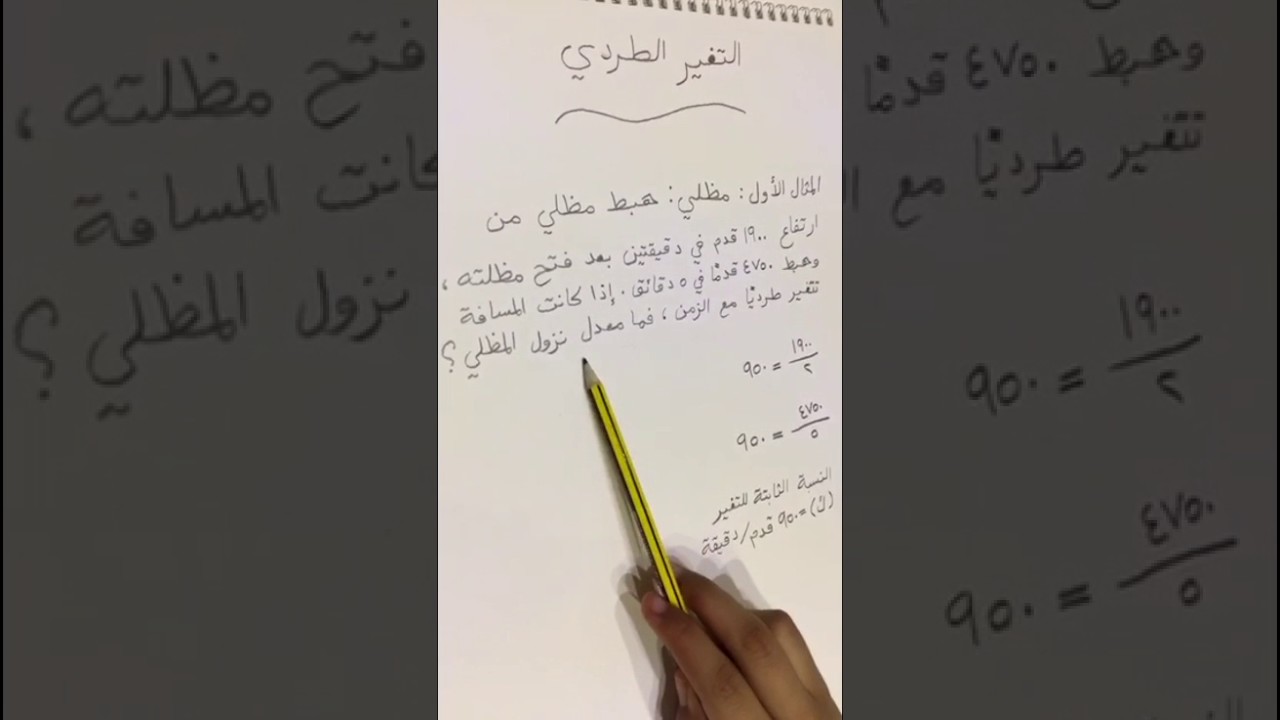 التغير الطردي
المثال الأول: مظلي: هبط مظلي من
ارتفاع ١٩٠٠ قدم في دقيقتين بعد فتح مظلته ،
وهبط ٤٧٥٠ قدمًا في ٥ دقائق. إذا كانت المسافة
تتغير طرديًا مع الزمن ، فما معدل نزول المظلي ؟
١٩٠٠/٢ = ٩٥٠
٤٧٥٠/٥ = ٩٥٠
النسبة الثابتة للتغير
(ك) = ٩٥٠ قدم/دقيقة